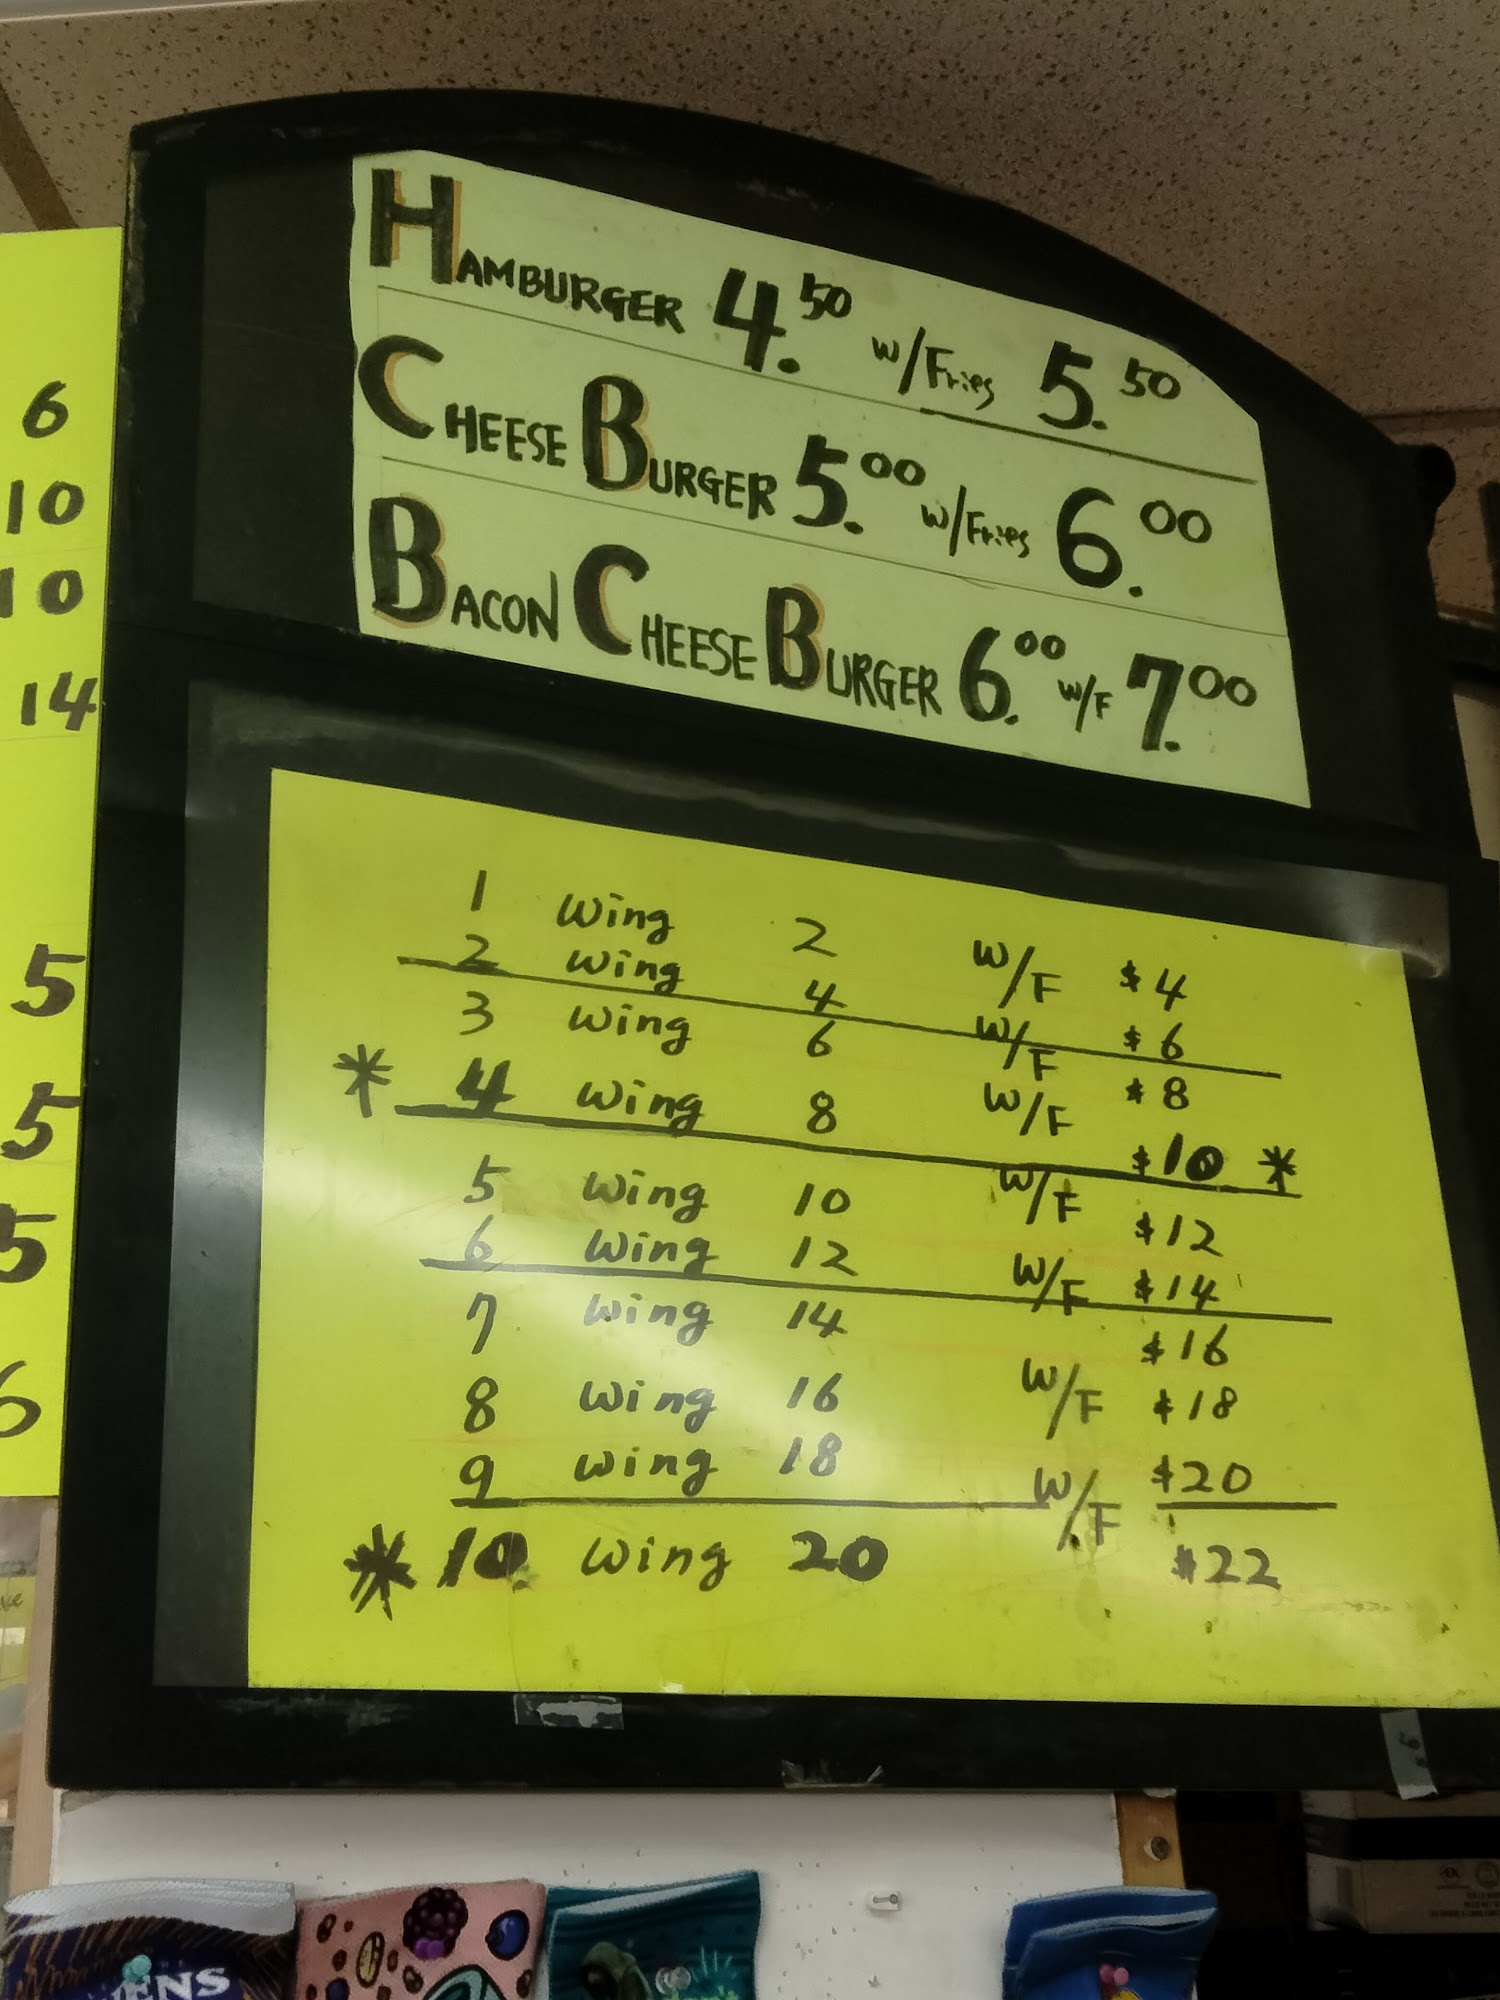 HAMBURGER 4.50 w/Fries 5.50
CHEESE BURGER 5.00 w/Fries 6.00
BACON CHEESE BURGER 6.00 w/F 7.00
1 wing 2 w/F $4
2 wing 4 w/F $6
3 wing 6 w/F $8
* 4 wing 8 $10 *
5 wing 10 w/F $12
6 wing 12 w/F $14
7 wing 14 $16
8 wing 16 w/F $18
9 wing 18 w/F $20
* 10 wing 20 $22
6
10
10
14
5
5
5
6
ENS